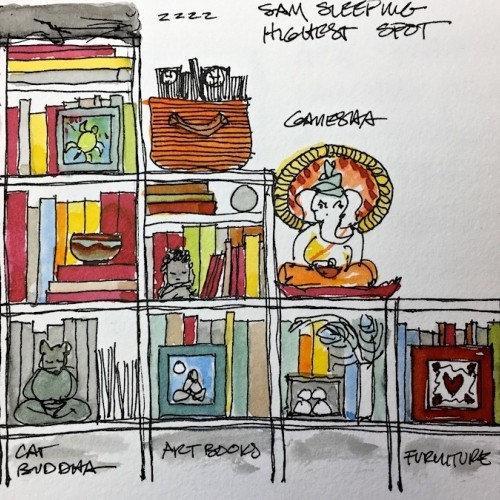 zzzz
SAM SLEEPING
HIGHEST SPOT
GANESHA
CAT
BUDDHA
ART BOOKS
FURNITURE